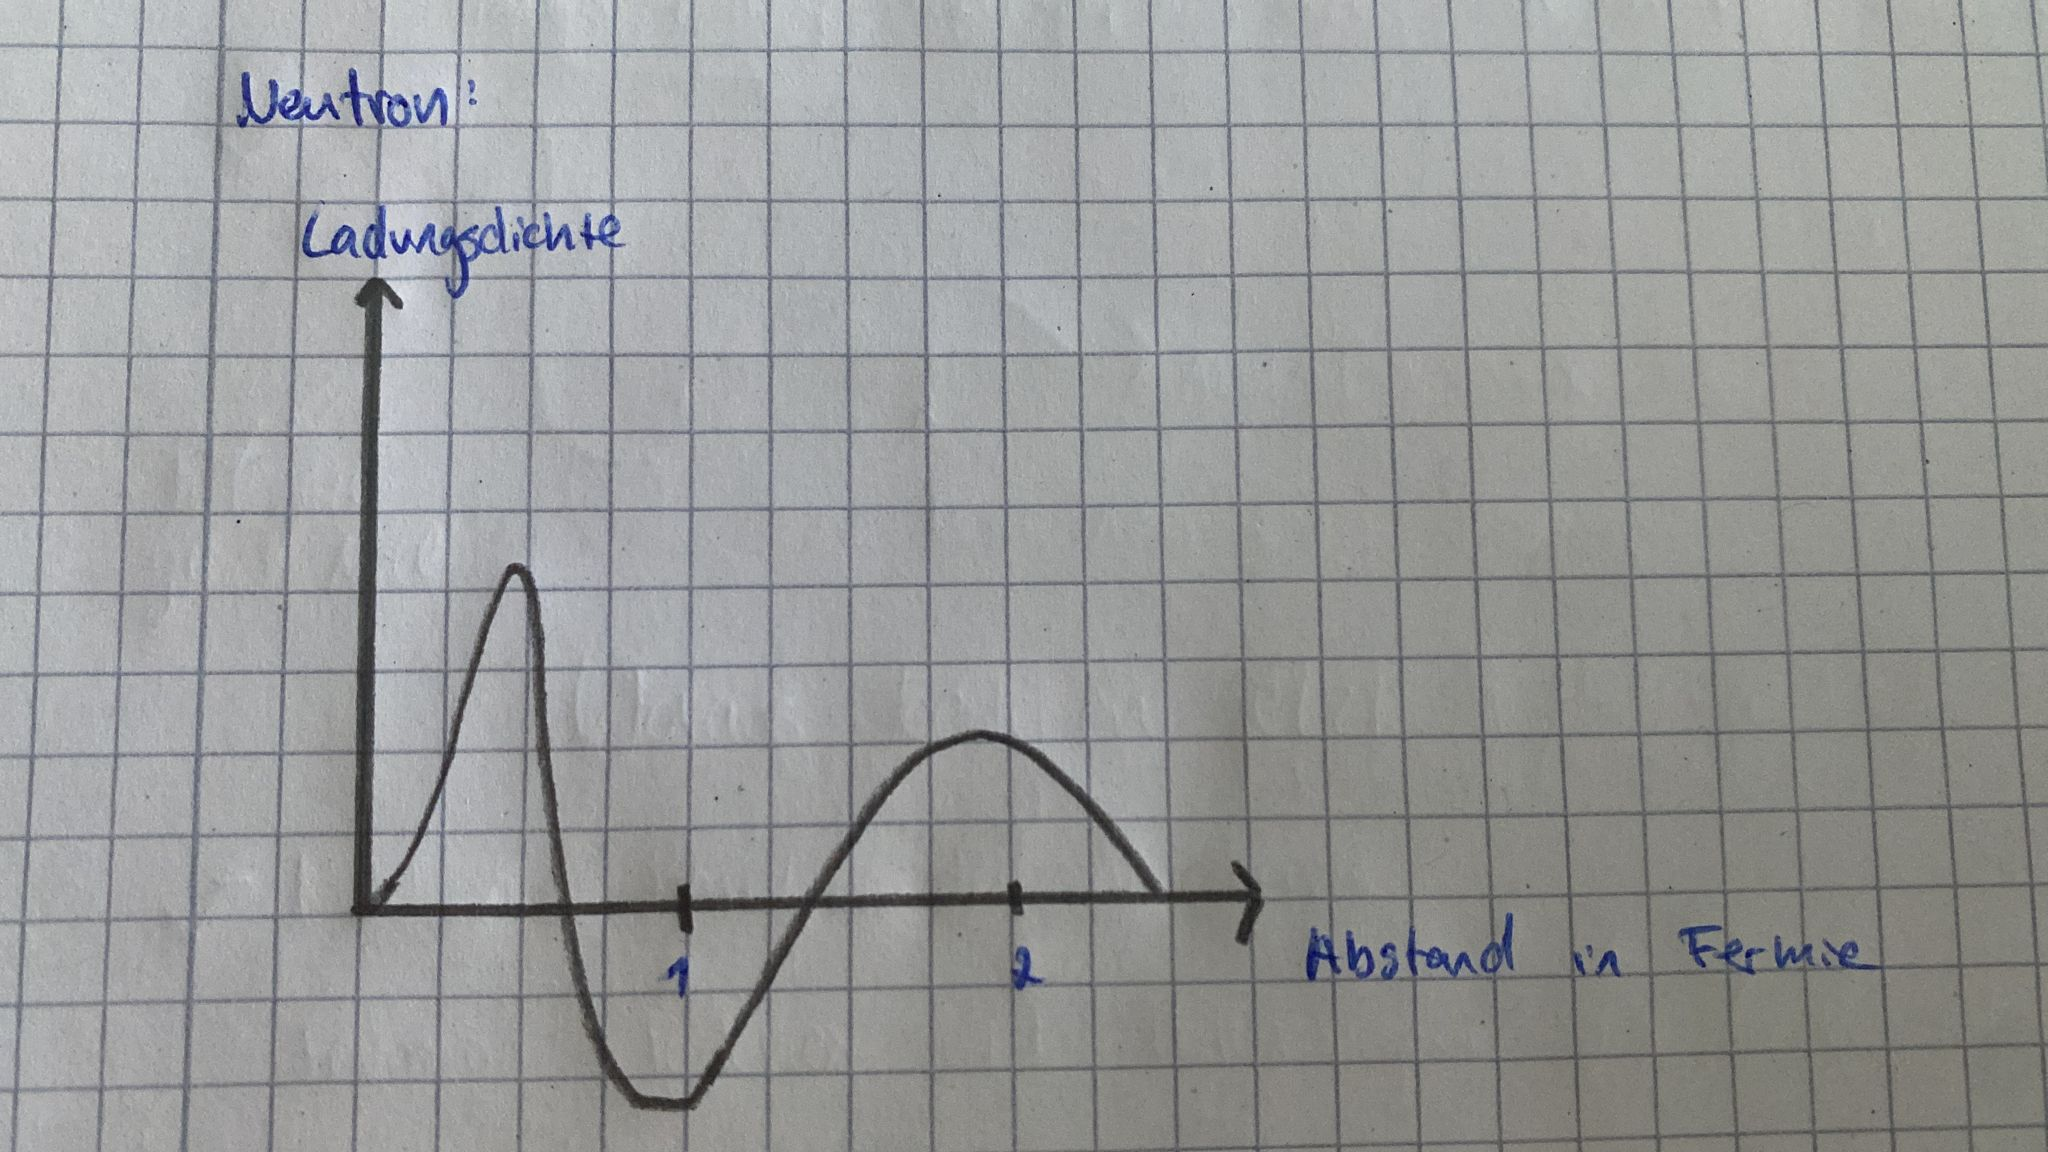 Neutron:
Ladungsdichte
1 2
Abstand in Fermie